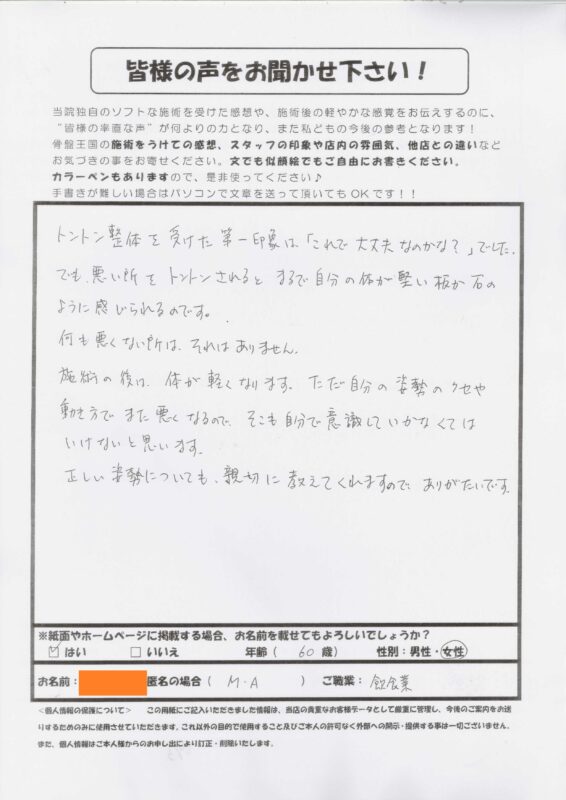 皆様の声をお聞かせ下さい！
当院独自のソフトな施術を受けた感想や、施術後の軽やかな感覚をお伝えするのに、
“皆様の率直な声”が何よりの力となり、また私どもの今後の参考となります！
骨盤王国の施術をうけての感想、スタッフの印象や店内の雰囲気、他店との違いなど
お気づきの事をお寄せください。文でも似顔絵でもご自由にお書きください。
カラーペンもありますので、是非使ってください♪
手書きが難しい場合はパソコンで文章を送って頂いてもOKです！！
トントン整体を受けた第一印象は「これで大丈夫なのかな?」でした。
でも、悪い所をトントンされると まるで自分の体が堅い板か石の
ように感じられるのです。
何も悪くない所は、それはありません。
施術の後は、体が軽くなります。ただ自分の姿勢のクセや
動き方でまた悪くなるので、そこも自分で意識していかなくては
いけないと思います。
正しい姿勢についても、親切に教えてくれますので ありがたいです。
※紙面やホームページに掲載する場合、お名前を載せてもよろしいでしょうか？
☑ はい □ いいえ 年齢（ 60 歳） 性別：男性・女性
お名前： 匿名の場合（ M・A ） ご職業： 飲食業
＜個人情報の保護について＞ この用紙にご記入いただきました情報は、当店の貴重なお客様データとして厳重に管理し、今後のご案内をお送
りするためのみに使用させていただきます。これ以外の目的で使用すること及びご本人の許可なく外部への開示・提供する事は一切ございません。
また、個人情報はご本人様からのお申し出により訂正・削除いたします。